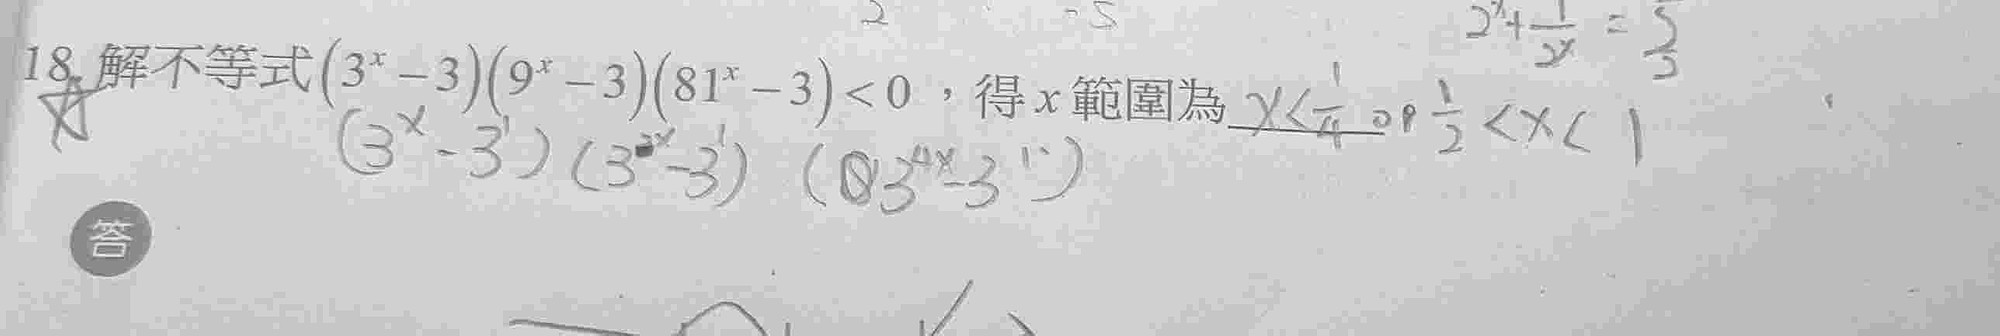 2 -5 2^x + 1/2^x = 5/2
18. 解不等式(3^x − 3)(9^x − 3)(81^x − 3) < 0,得 x 範圍為 x < 1/4 or 1/2 < x < 1
(3^x - 3^1) (3^2x - 3^1) (3^4x - 3^1)
答